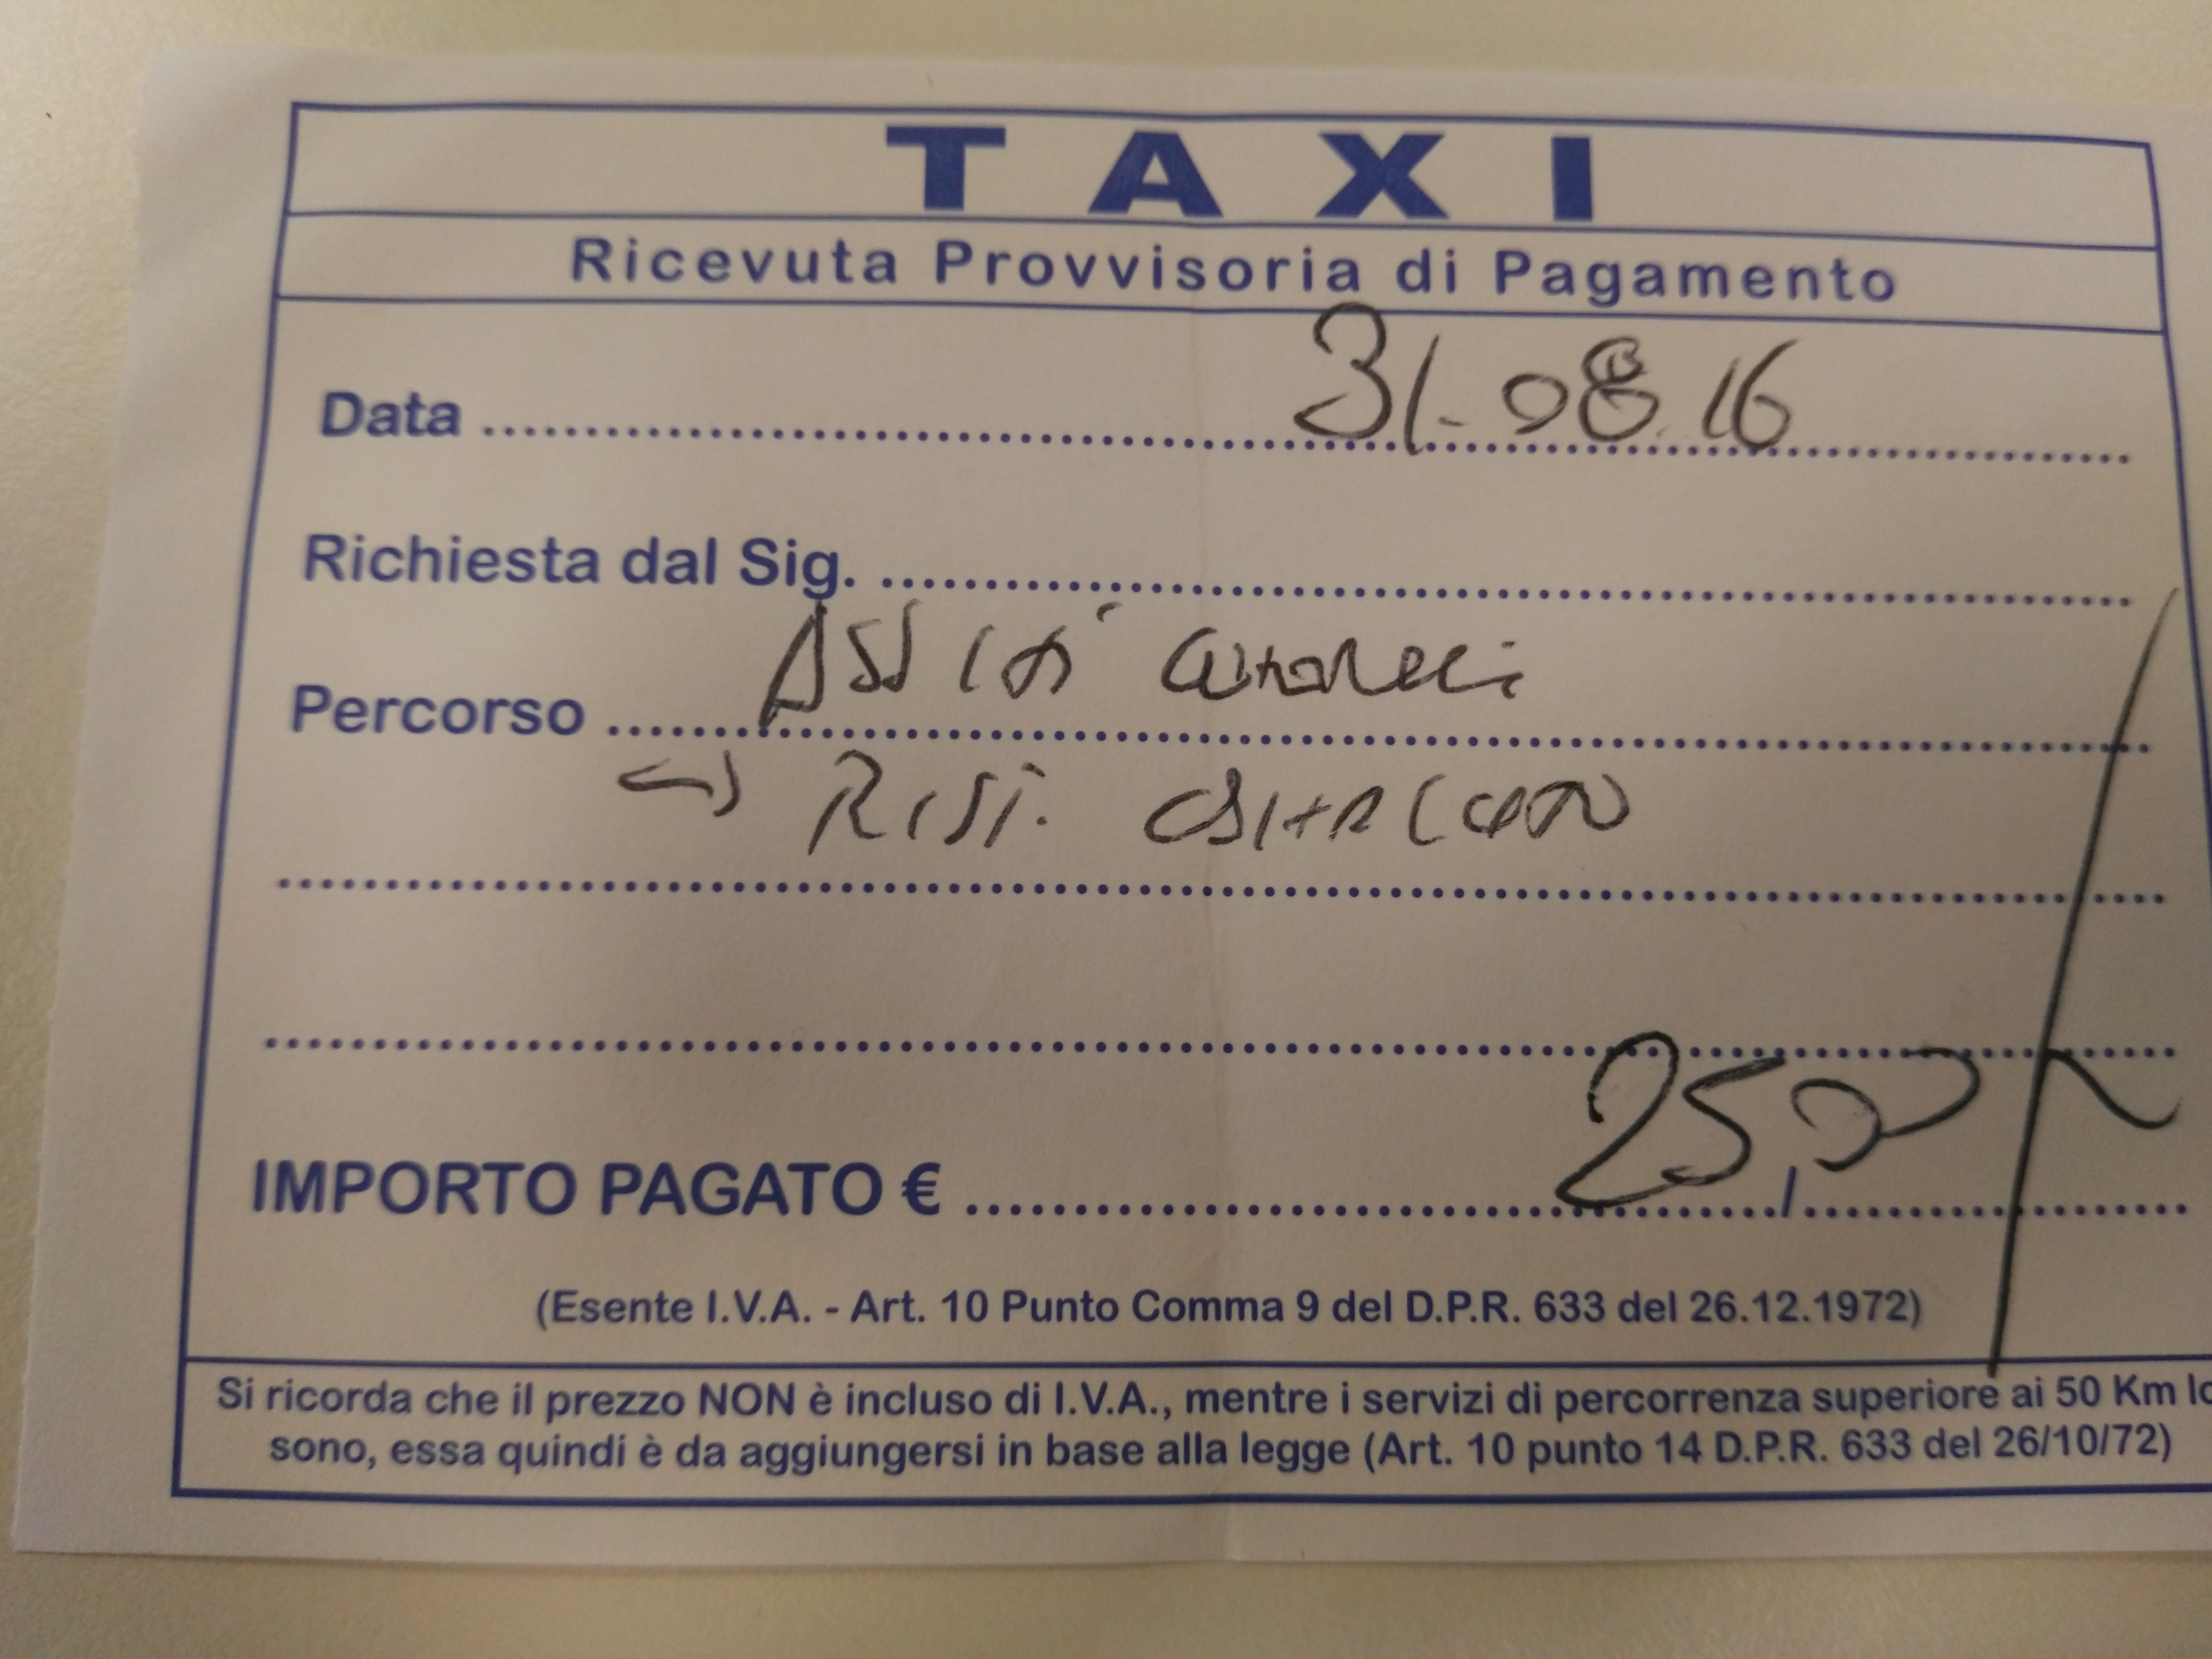 TAXI
Ricevuta Provvisoria di Pagamento
Data ........ 31-08.16
Richiesta dal Sig. ........
Percorso ........
IMPORTO PAGATO € ........ 25,00
(Esente I.V.A. - Art. 10 Punto Comma 9 del D.P.R. 633 del 26.12.1972)
Si ricorda che il prezzo NON è incluso di I.V.A., mentre i servizi di percorrenza superiore ai 50 Km lo
sono, essa quindi è da aggiungersi in base alla legge (Art. 10 punto 14 D.P.R. 633 del 26/10/72)